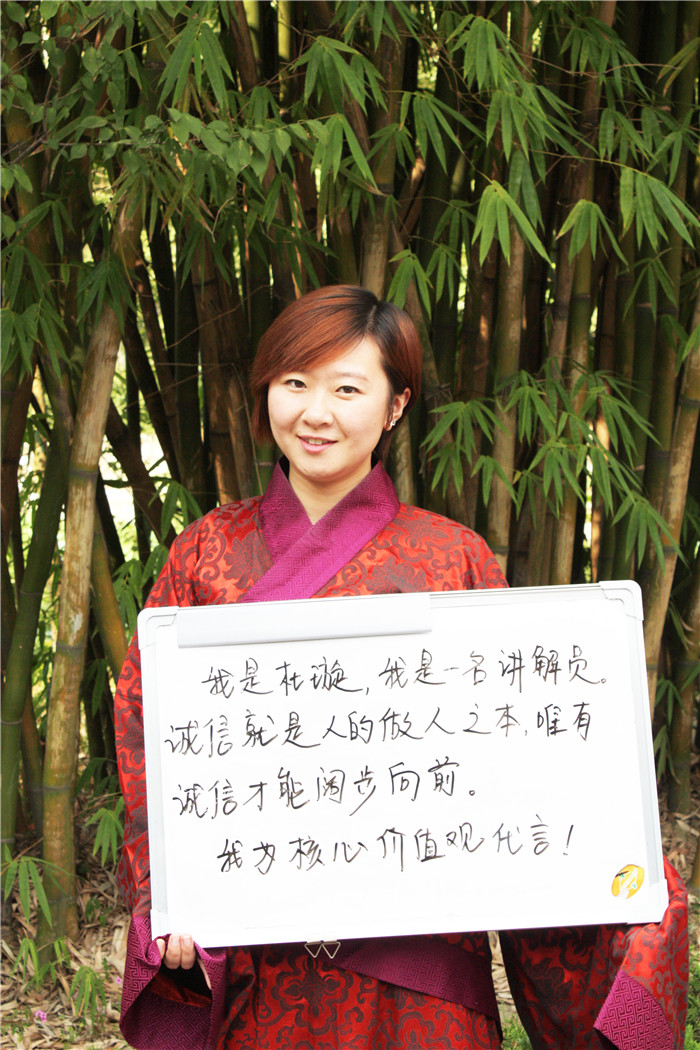 我是杜璇，我是一名讲解员。
诚信就是人的做人之本，唯有
诚信才能阔步向前。
我为核心价值观代言！